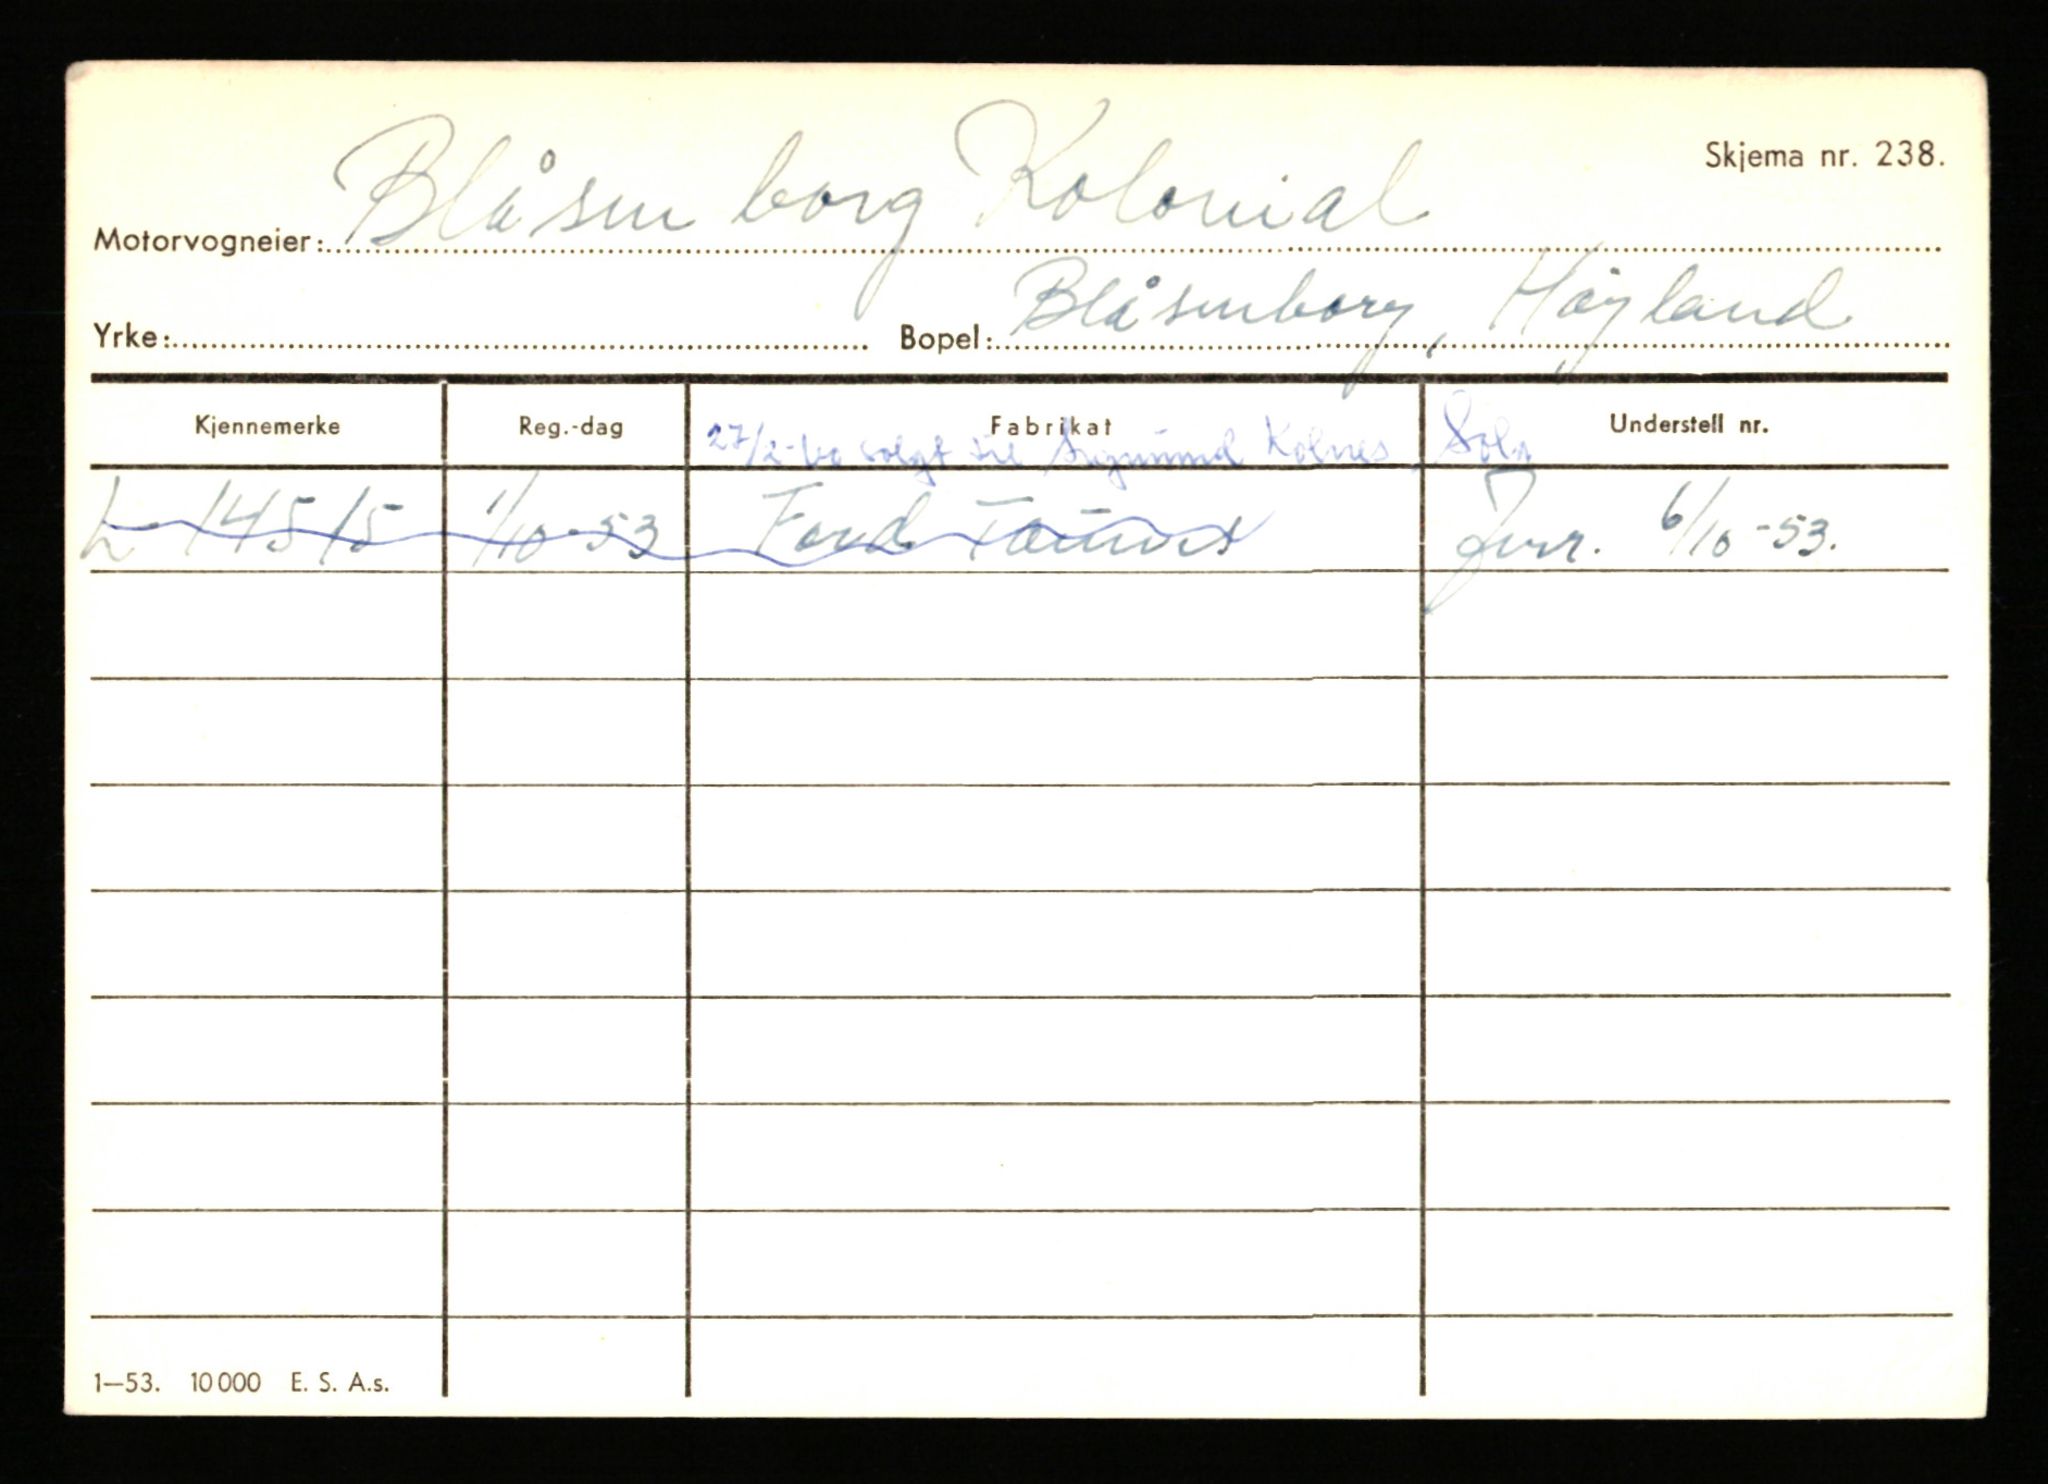 Skjema nr. 238.
Motorvogneier: Blåsenborg Kolonial
Yrke: Bopel: Blåsenborg, Høyland
Kjennemerke Reg.-dag Fabrikat Understell nr.
27/2-60 solgt til Sigmund Kolnes, Sola
L 14515 1/10-53 Ford Taunus 6/10-53.
1—53. 10000 E. S. A.s.